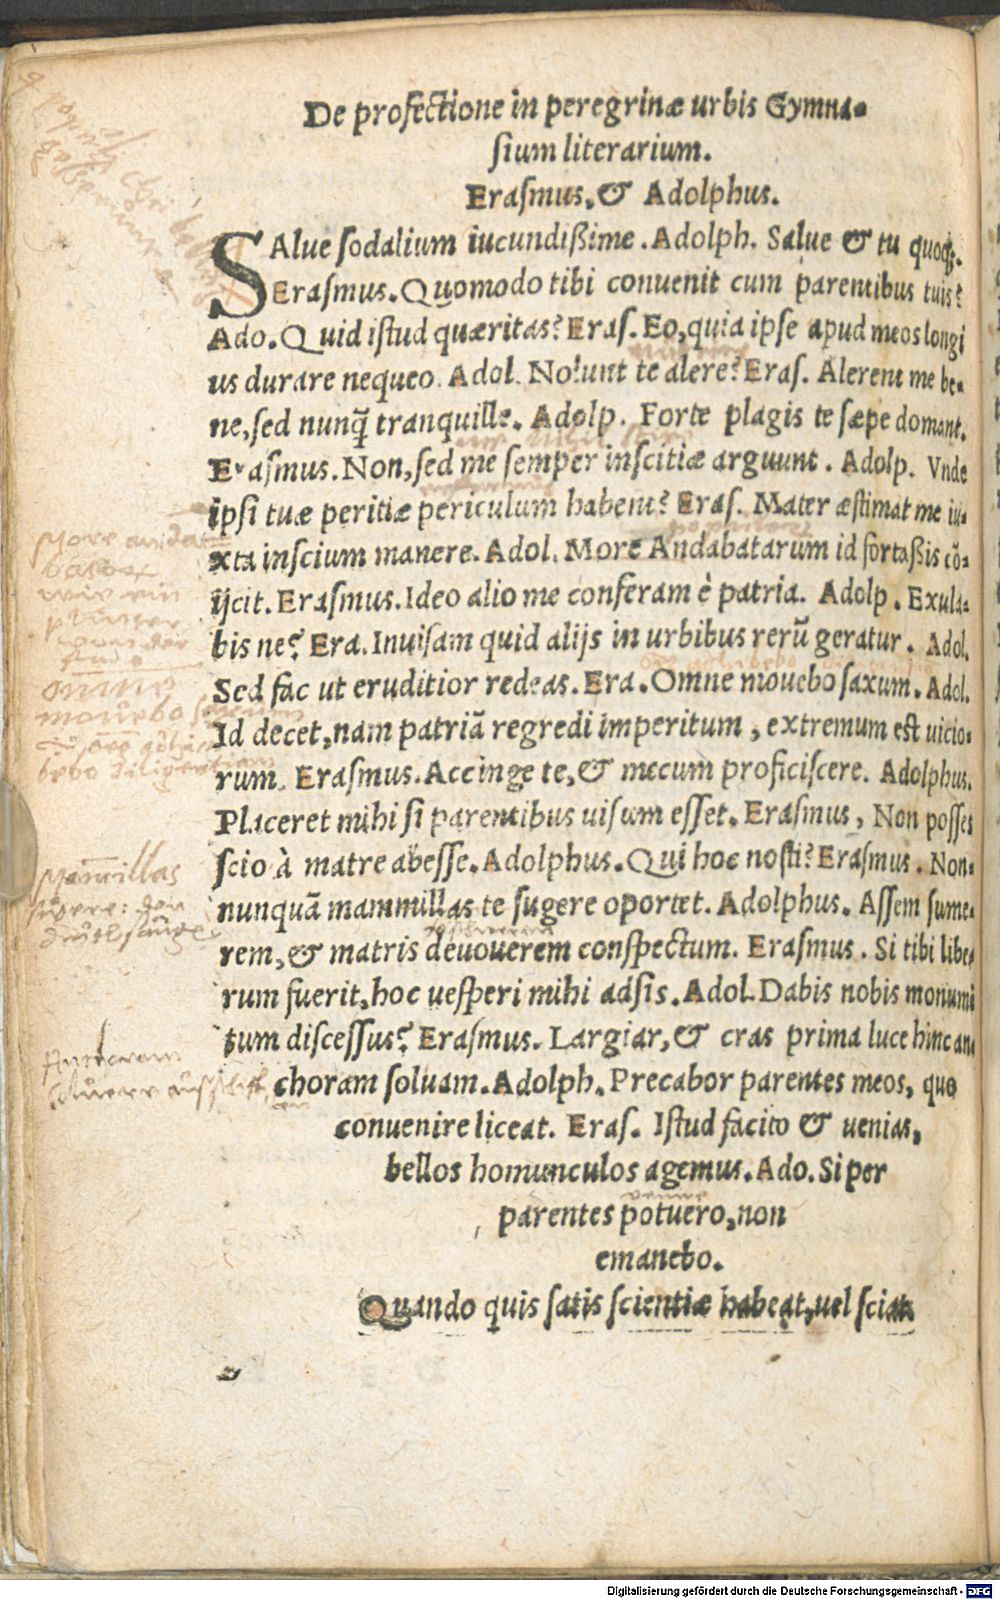 De profectione in peregrinæ urbis Gymna-
sium literarium.
Erasmus, & Adolphus.
SAlue sodalium iucundißime. Adolph. Salue & tu quoq;.
Erasmus. Quomodo tibi convenit cum parentibus tuis?
Ado. Quid istud quæritas? Eras. Eo, quia ipse apud meos longi
us durare nequeo. Adol. Nolunt te alere? Eras. Alerent me be-
ne, sed nunq̃ tranquille. Adolp. Forte plagis te sæpe domant.
Erasmus. Non, sed me semper inscitiæ arguunt. Adolp. Vnde
ipsi tuæ peritiæ periculum habent? Eras. Mater æstimat me iu-
xta inscium manere. Adol. More Andabatarum id fortaßis cō-
ijcit. Erasmus. Ideo alio me conferam è patria. Adolp. Exula-
bis ne? Era. Inuisam quid alijs in urbibus rerū geratur. Adol.
Sed fac ut eruditior redeas. Era. Omne mouebo saxum. Adol.
Id decet, nam patriā regredi imperitum, extremum est uicio-
rum. Erasmus. Accinge te, & mecum proficiscere. Adolphus.
Placeret mihi si parentibus uisum esset. Erasmus, Non posses
scio à matre abesse. Adolphus. Qui hoc nosti? Erasmus. Non-
nunquā mammillas te sugere oportet. Adolphus. Assem sume-
rem, & matris deuouerem conspectum. Erasmus. Si tibi libe-
rum fuerit, hoc uesperi mihi adsis. Adol. Dabis nobis monumē
tum discessus? Erasmus. Largiar, & cras prima luce hinc an-
choram soluam. Adolph. Precabor parentes meos, quo
convenire liceat. Eras. Istud facito & uenias,
bellos homunculos agemus. Ado. Si per
parentes potuero, non
emanebo.
Quando quis satis scientiæ habeat, uel sciat.
More andabatarum
omne
mouebo saxum
Mammillas
sugere:
Digitalisierung gefördert durch die Deutsche Forschungsgemeinschaft - DFG